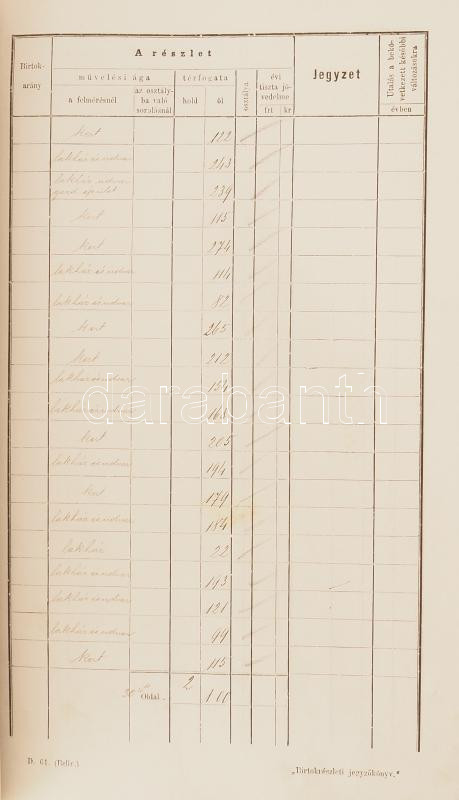 Birtok-
arány
A részlet
művelési ága
a felmérésnél
az osztály-
ba való
sorolásnál
térfogata
hold
öl
osztálya
évi
tiszta jö-
vedelme
frt kr
Jegyzet
Utalás a bekö-
vetkezett későbbi
változásokra
évben
Kert 122
lakház és udvar 243
lakház udvar
gazd. épület 239
Kert 115
Kert 274
lakház és udvar 114
lakház és udvar 82
Kert 265
Kert 212
lakház és udvar 154
lakház és udvar
Kert 205
lakház és udvar 194
Kert 179
lakház és udvar 184
lakház 22
lakház és udvar 193
lakház és udvar 121
lakház és udvar 99
Kert 115
Oldal 2 100
darabanth
D. 61. (Belir.)
„Birtokrészleti jegyzőkönyv."